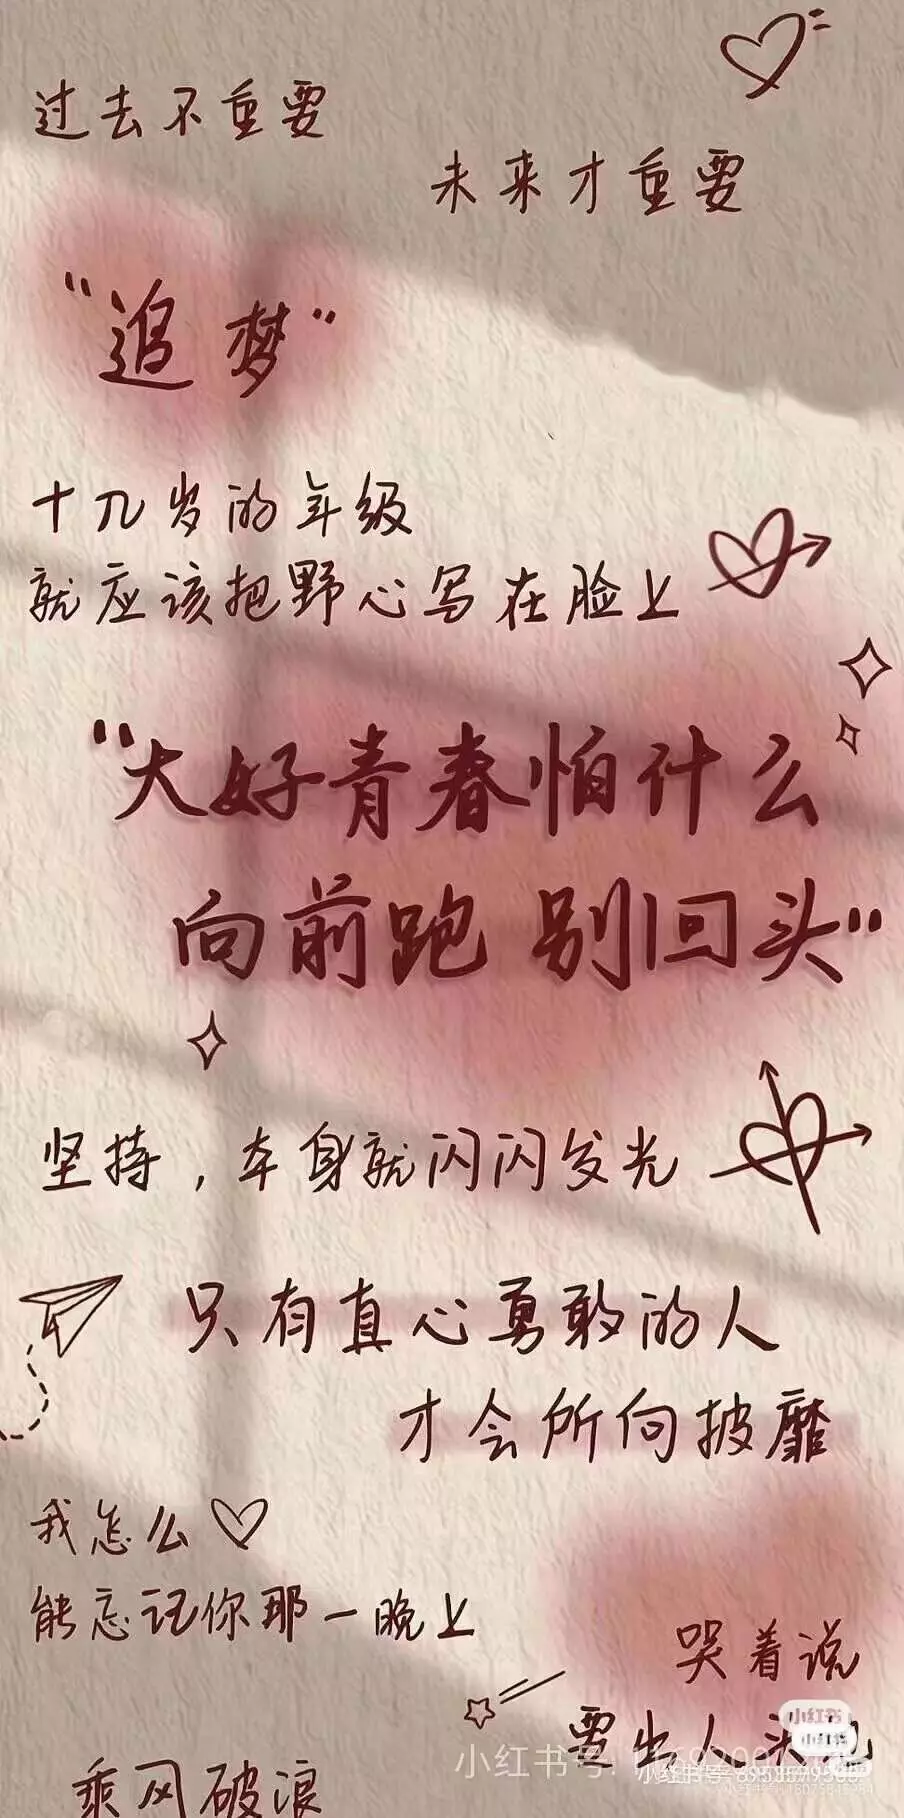 过去不重要
未来才重要
"追梦"
十几岁的年级
就应该把野心写在脸上
"大好青春怕什么
向前跑 别回头"
坚持，本身就闪闪发光
只有真心勇敢的人
才会所向披靡
我怎么
能忘记你那一晚上
哭着说
要出人头地
乘风破浪
小红书
小红书
小红书号:
小红书号